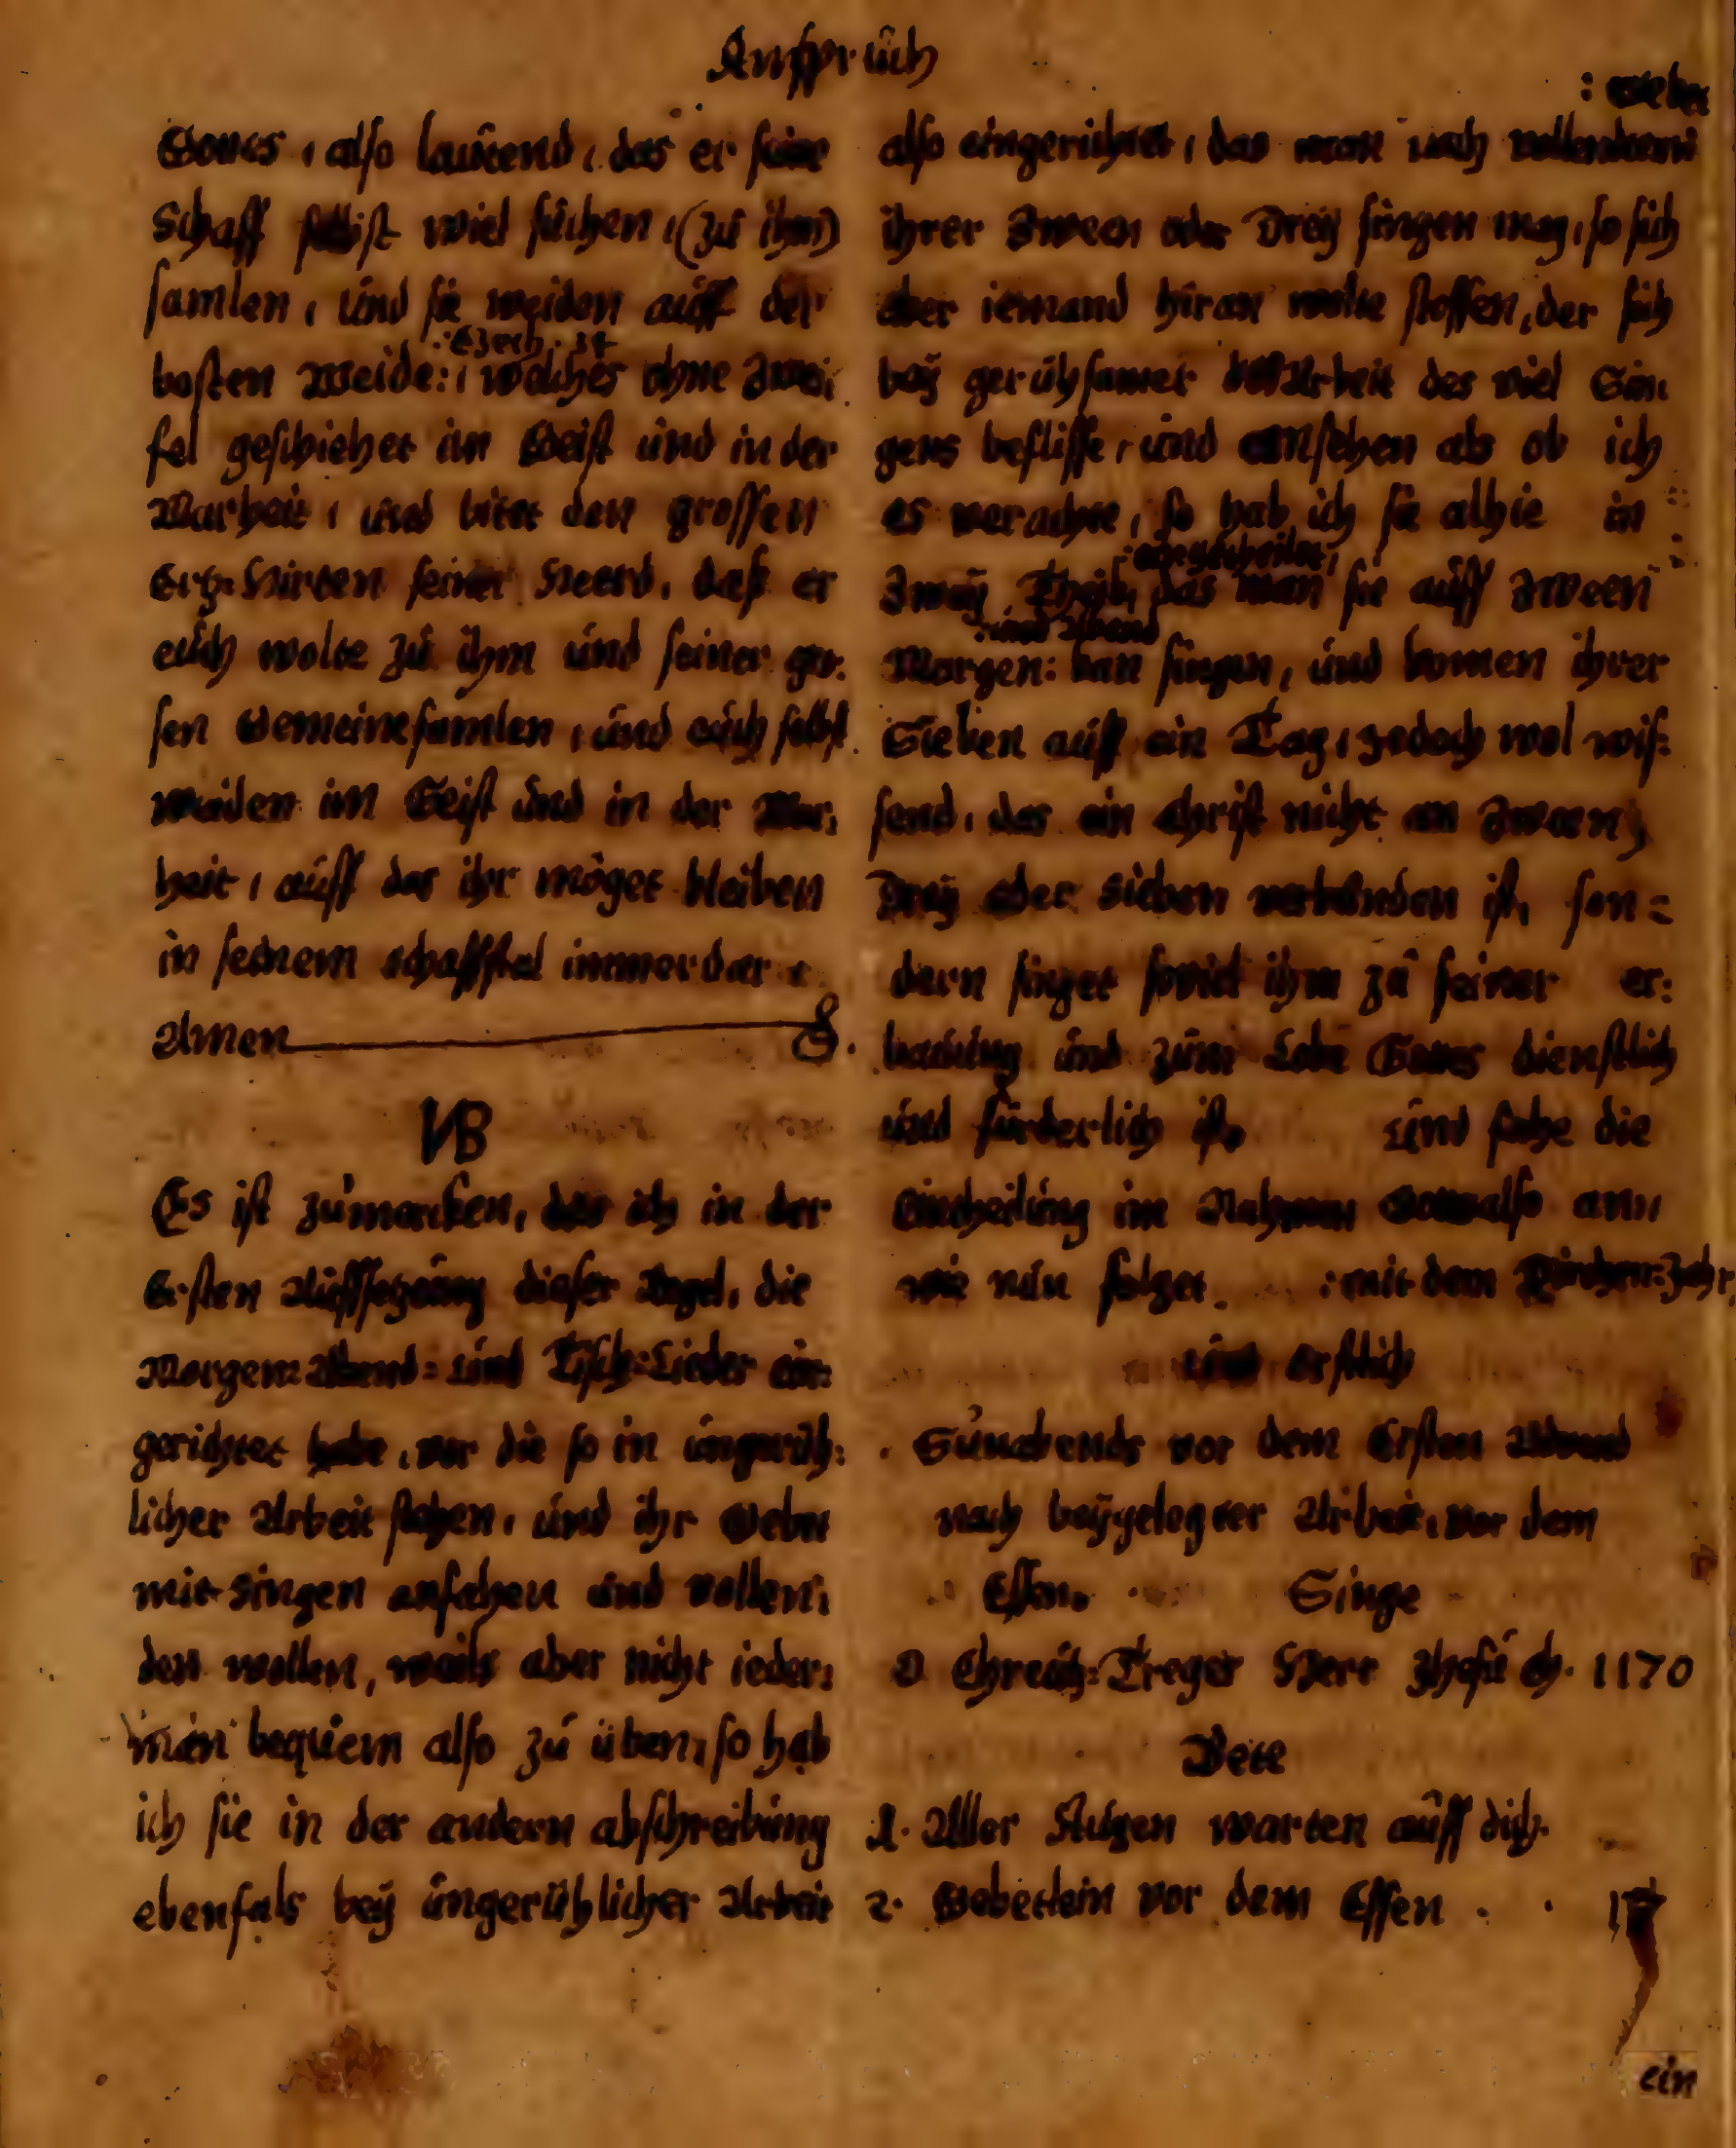 Ansprüch
Gottes, also lautend, das er seine
Schaff selbist wiel suchen, (zu ihm)
samlen, und sie weiden auff der
:Ezech. 34
besten Weide:, welches ohne Zwei,
fel geschiehet im Geist und in der
Warheit, und bitet den grossen
Ertz-Hirten seiner Heerd, daß er
euch wolte zu ihm und seiner gros:
sen Gemeine samlen, und euch selbst
weiden im Geist und in der War,
heit, auff das ihr möget bleiben
in seinem schaffstal immerdar
Amen
NB
Es ist zumercken, das ich in der
Ersten Auffsetzung dieser Regel, die
Morgen: Abend: und Tisch:Lieder ein:
gerichtet habe, vor die so in ungerüh:
licher Arbeit stehen, und ihr Gebet
mit singen anfahen und vollen,
den wollen, weils aber nicht ieder:
man bequem also zu üben, so hab
ich sie in der andern abschreibung
ebenfals bey ungerühlicher Arbeit
: Gebet
also eingerichtet, das man nach vollendtem
ihrer Zween oder Drey singen mag, so sich
aber iemand hiran wolte stossen, der sich
bey gerühsamer Arbeit des viel Sin
gens beflisse, und ansehen als ob ich
es verachte, so hab ich sie alhie in
:abgetheilet,
Zwey Theil, das man sie auff Zween
:und Abend
Morgen: kan singen, und komen ihrer
Sieben auff ein Tag, jedoch wol wis:
send, das ein Christ nicht an Zwantz,
Drey oder Sieben verbunden ist, son=
dern singet soviel ihm zu seiner er:
bauung und zum Lobe Gottes dienstlich
und fürderlich ist. und fahe die
Eintheilung im Nahmen Gottes also an,
wie nun folget :mit dem Kirchen:Jahr,
und erstlich
Sunabends vor dem Ersten Advend
nach beygelegter Arbeit, vor dem
Essen. Singe
O Chreutz:Treger Herr Jhesu ch. 1170
Bete
1. Aller Augen warten auff dich.
2. Gebetlein vor dem Essen
ein